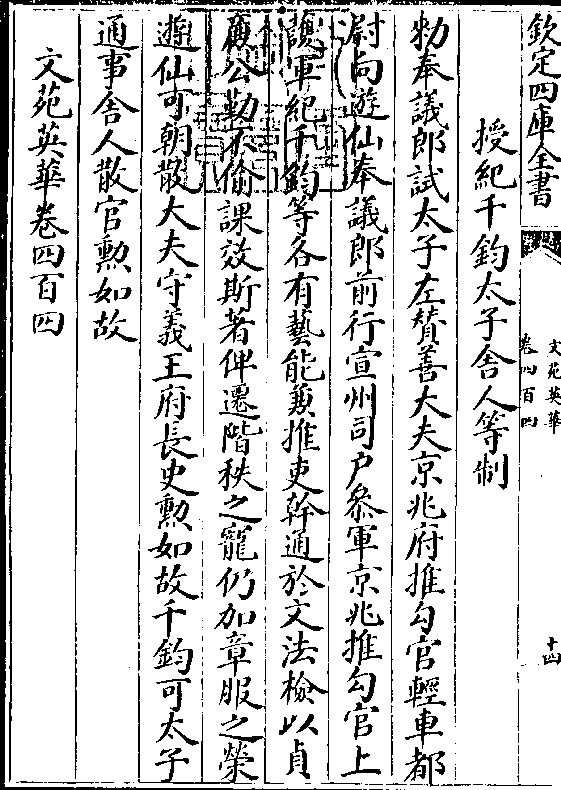 欽定四庫全書
文苑英華
卷四百四
十四
授紀千鈞太子舍人等制
勅奉議郎試太子左賛善大夫京兆府推勾官輕車都
尉向遊仙奉議郎前行宣州司户叅軍京兆推勾官上
護軍紀千鈞等各有藝能兼推吏幹通於文法檢以貞
廉公勤不偷課效斯著俾遷階秩之寵仍加章服之榮
遊仙可朝散大夫守義王府長史勲如故千鈞可太子
通事舍人散官勲如故
文苑英華卷四百四